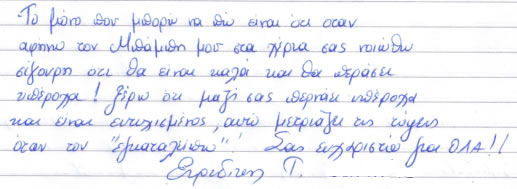 Το μόνο που μπορώ να πω είναι ότι όταν
αφήνω τον Μπάμπη μου στα χέρια σας νοιώθω
σίγουρη ότι θα είναι καλά και θα περάσει
υπέροχα! Ξέρω ότι μαζί σας περνάει υπέροχα
και είναι ευτυχισμένος, αυτό μετριάζει τις τύψεις
όταν τον "εγκαταλείπω"! Σας ευχαριστώ για ΟΛΑ!!
Ευρυδίκη Τ.